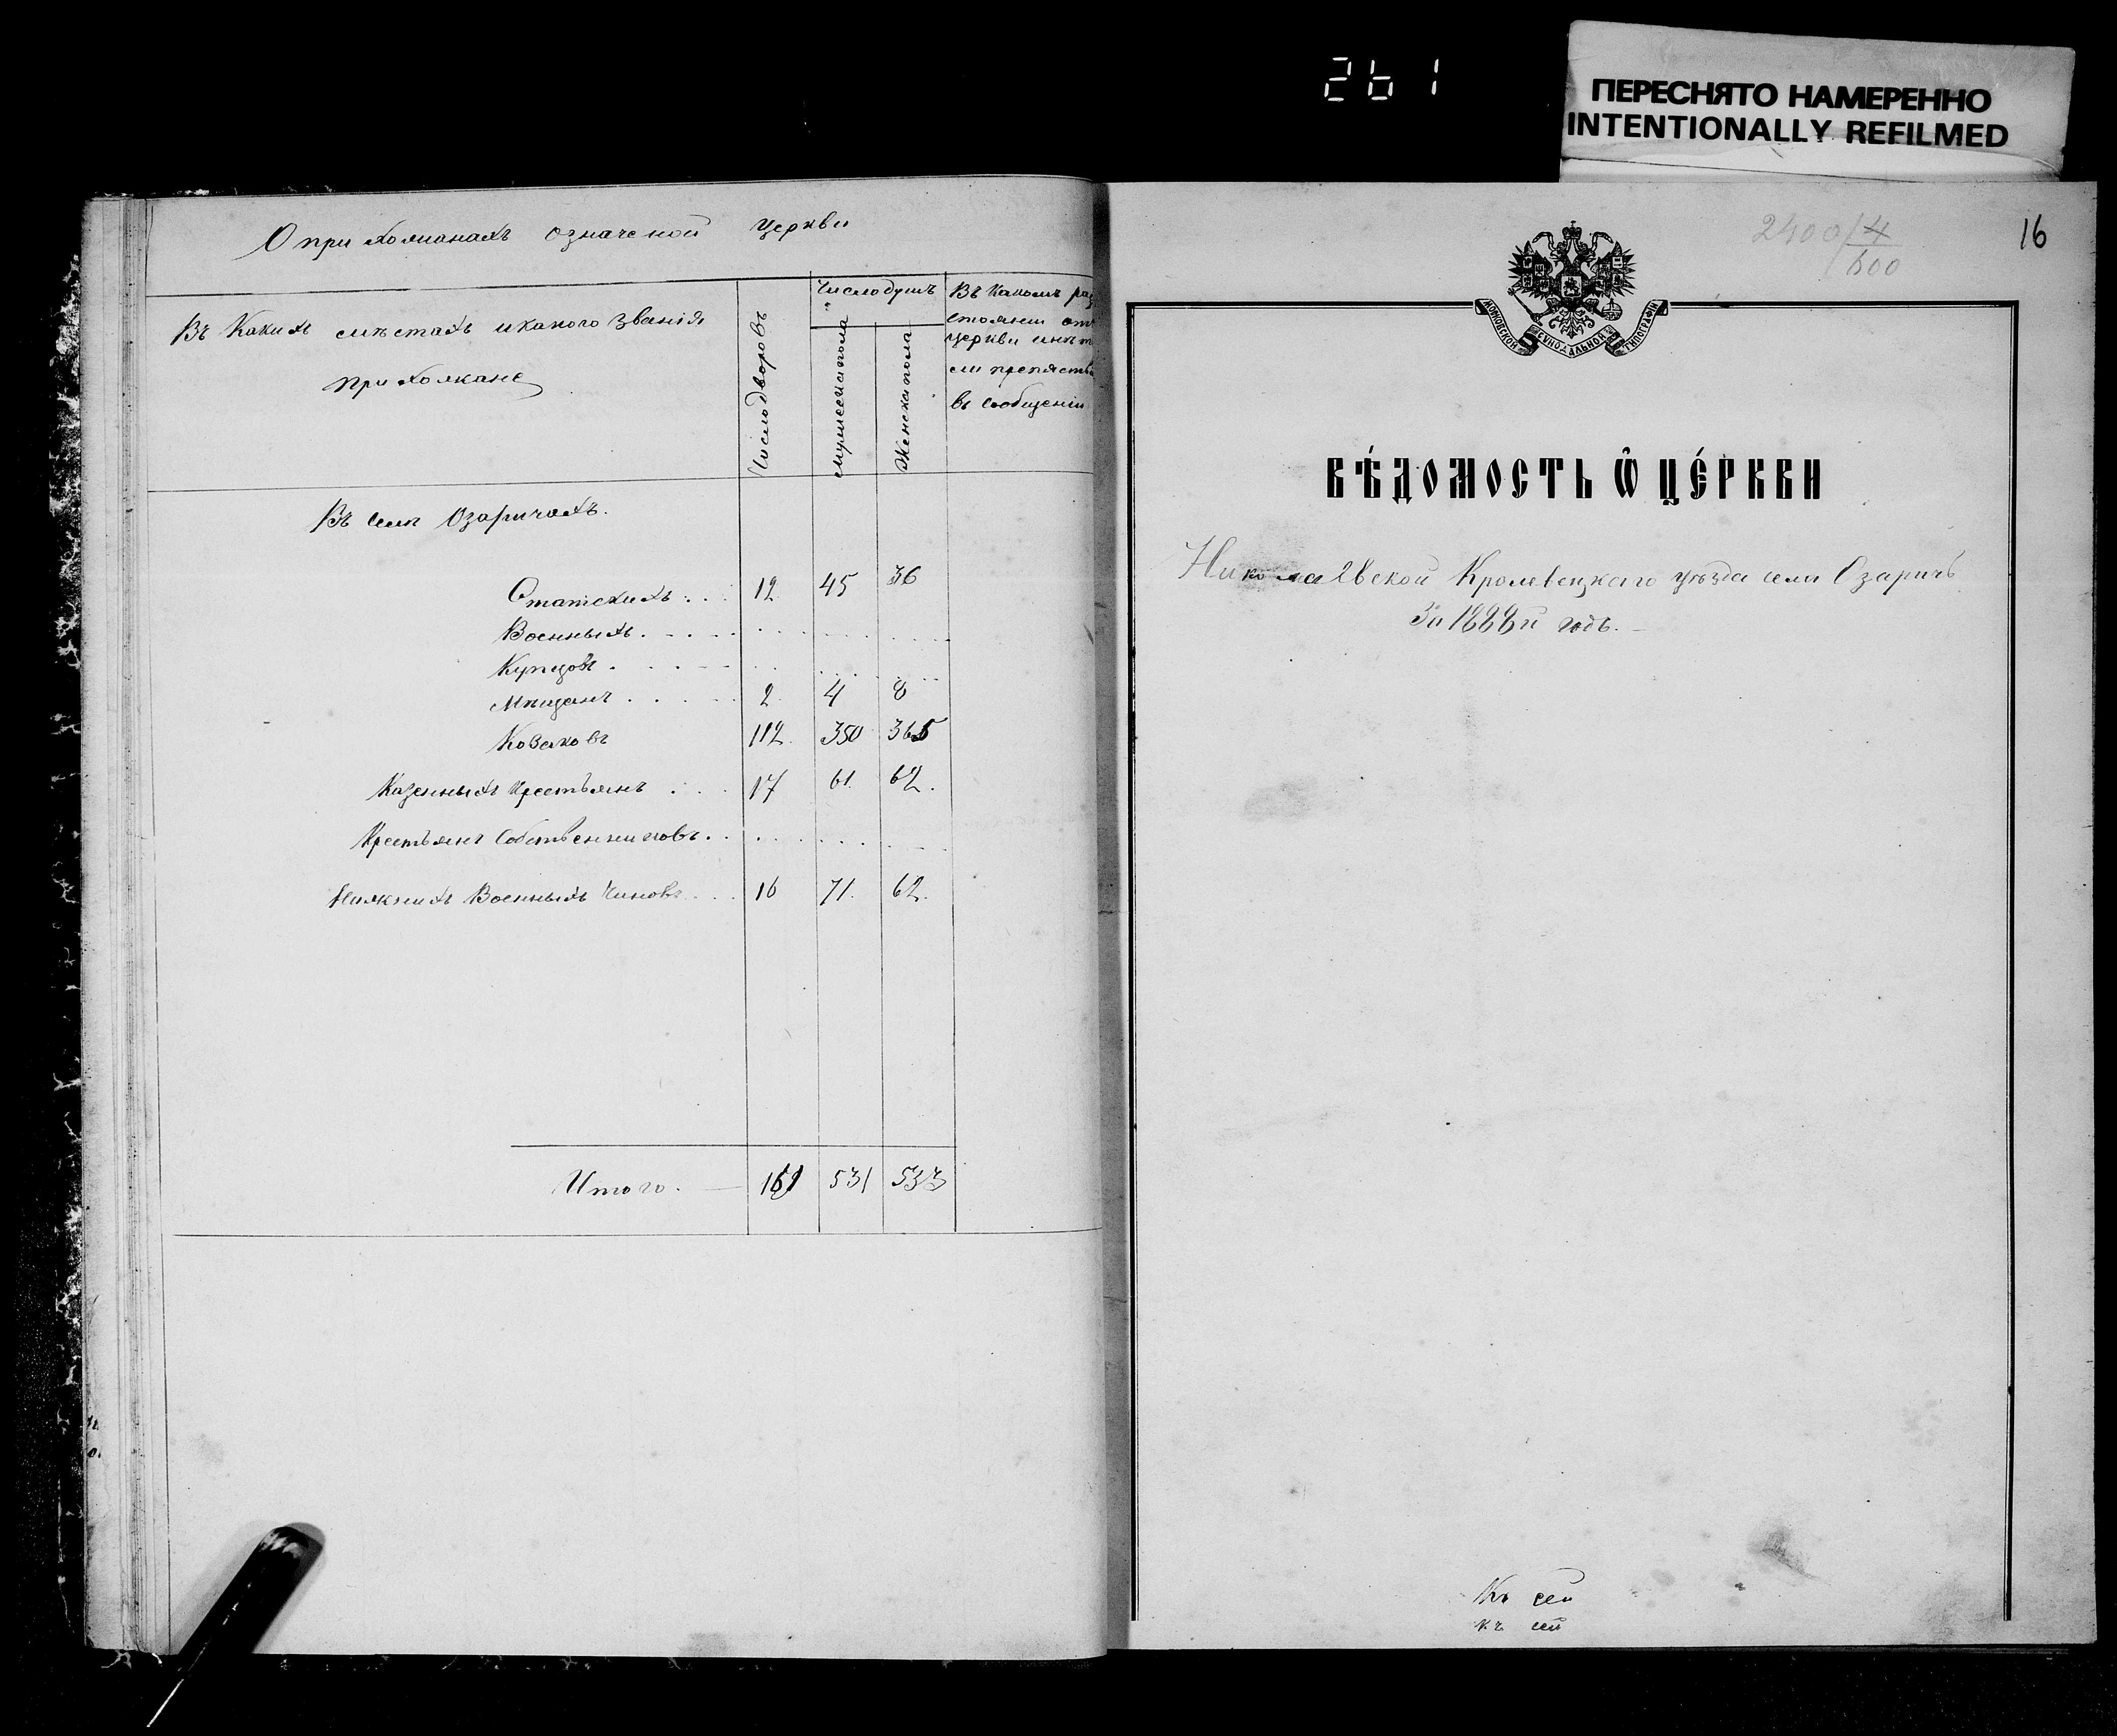 261
ПЕРЕСНЯТО НАМЕРЕННО
INTENTIONALLY REFILMED
О прихожанахъ означеной церкви
Въ Какихъ мѣстахъ и какого званія
прихожане
Число дворовъ
Число душъ
мужеска пола
Женска пола
Въ Какомъ раз
стояніи отъ
церкви и нѣт
ли препятств
въ сообщеніи
Въ селѣ Озаричахъ.
Статскихъ . . . 12 45 36
Военныхъ . . . .
Купцовъ . . . .
Мѣщанъ . . . . 2 4 8
Козаковъ 112. 350 365
Казенныхъ Крестьянъ . . . 17 61. 62.
Крестьянъ Собственниковъ . .
Нижнихъ Военныхъ Чиновъ . . . 16 71. 62.
Итого. — 531 533
16
2400/4
600
МОСКОВСКОЙ СѴНОДАЛЬНОЙ ТИПОГРАФІИ
ВѢ́ДОМОСТЬ Ѡ҆ ЦЕ́РКВИ
Николаевской Кролевецкаго уѣзда села Озаричъ
За 1888й годъ. —
Къ сей
къ сей